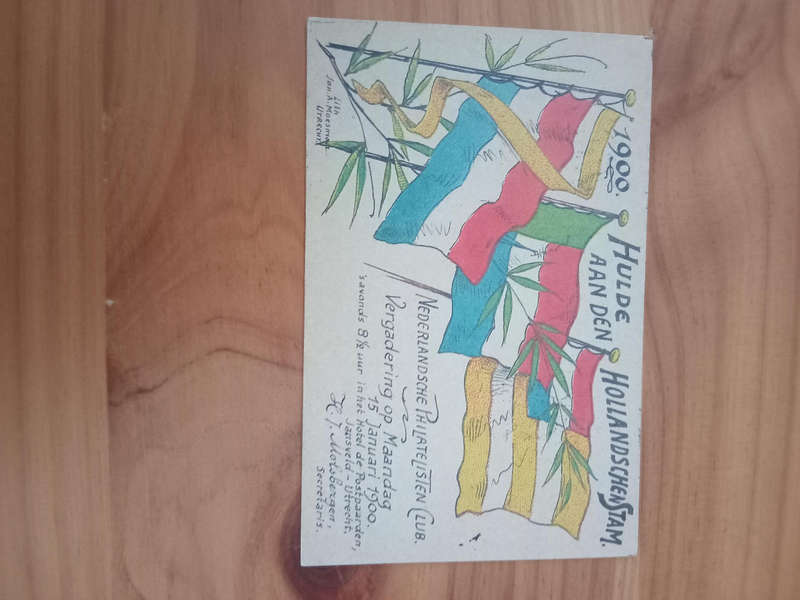 1900.
HULDE
AAN DEN
HOLLANDSCHEN STAM.
Lith.
Jan. A. Moesman
UTRECHT
NEDERLANDSCHE PHILATELISTEN CLUB.
Vergadering op Maandag
15 Januari 1900,
's avonds 8½ uur in het Hotel de Postpaarden,
Jansveld - Utrecht.
H. J. Molsbergen,
Secretaris.